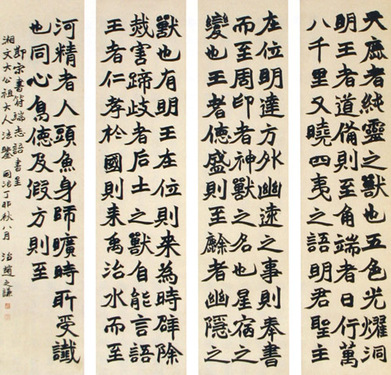 天鹿者純靈之獸也五色光耀洞
明王者道備則至角端者日行萬
八千里又曉四夷之語明君聖主
在位明達方外幽遠之事則奉書
而至周印者神獸之名也星宿之
變也王者德盛則至䴥者幽隱之
獸也有明王在位則來為時辟除
烖害蹄歧者后土之獸自能言語
王者仁孝於國則來禹治水而至
河精者人頭魚身師曠時所受讖
也同心鳥德及假方則至
節宋書符瑞志語書呈
湘文大公祖大人法鑒 同治丁卯秋八月 治趙之謙